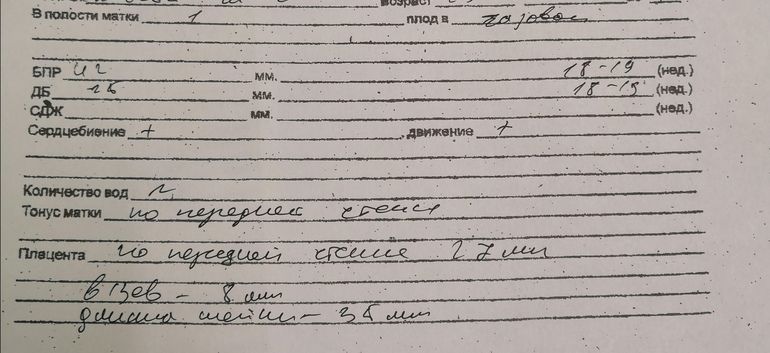 возраст
В полости матки 1 плод в тазовом
БПР 42 мм. 18-19 (нед.)
ДБ 26 мм. 18-19 (нед.)
СДЖ мм. (нед.)
Сердцебиение + , движение +
Количество вод N
Тонус матки по передней стенке
Плацента по передней стенке 27 мм
8 мм
длина шейки - 35 мм